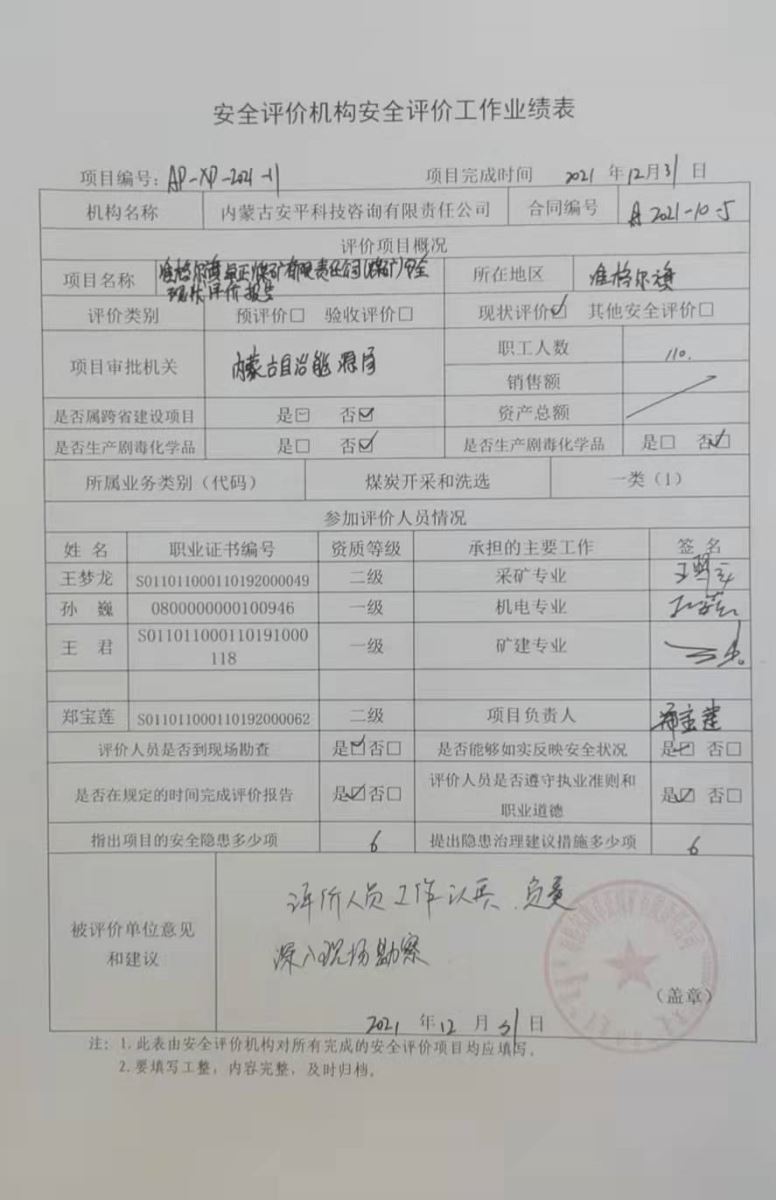 安全评价机构安全评价工作业绩表
项目编号：AP-XP-2021-11 项目完成时间 2021 年12月31日
机构名称 内蒙古安平科技咨询有限责任公司 合同编号 A 2021-10-5
评价项目概况
项目名称 准格尔旗 正煤矿有限责任公司(煤矿)安全 所在地区 准格尔旗
现状评价报告
评价类别 预评价□ 验收评价□ 现状评价☑ 其他安全评价□
项目审批机关 内蒙古自治能源局 职工人数 110.
销售额
是否属跨省建设项目 是□ 否☑ 资产总额
是否生产剧毒化学品 是□ 否☑ 是否生产剧毒化学品 是□ 否☑
所属业务类别（代码） 煤炭开采和洗选 一类（1）
参加评价人员情况
姓 名 职业证书编号 资质等级 承担的主要工作 签 名
王梦龙 S011011000110192000049 二级 采矿专业
孙 巍 0800000000100946 一级 机电专业
王 君 S011011000110191000 一级 矿建专业 王君
118
郑宝莲 S011011000110192000062 二级 项目负责人 郑宝莲
评价人员是否到现场勘查 是☑否□ 是否能够如实反映安全状况 是☑ 否□
是否在规定的时间完成评价报告 是☑否□ 评价人员是否遵守执业准则和 是☑ 否□
职业道德
指出项目的安全隐患多少项 6 提出隐患治理建议措施多少项 6
被评价单位意见
和建议
评价人员工作认真、负责
深入现场勘察
（盖章）
2021 年12 月 31 日
注：1.此表由安全评价机构对所有完成的安全评价项目均应填写。
2.要填写工整，内容完整，及时归档。